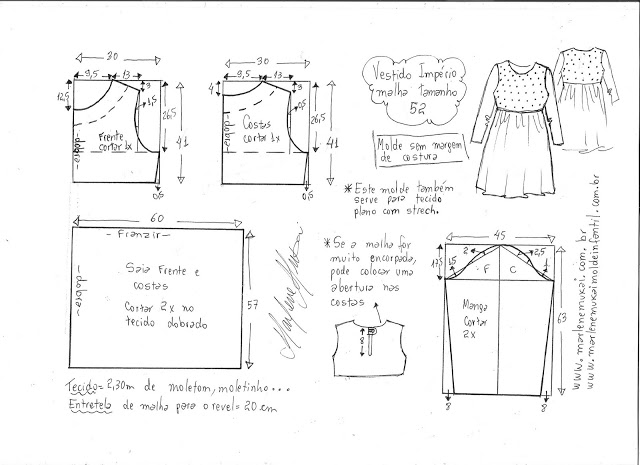 30
9,5
13
3
12,5
1,5
26,5
41
Frente
cortar 1x
-dobra-
0,5
30
9,5
13
3
4
26,5
41
Costas
cortar 1x
-dobra-
0,5
Vestido Império
malha tamanho
52
Molde sem margem
de costura
*Este molde também
serve para tecido
plano com strech.
60
- Franzir -
Saia Frente e
costas
Cortar 2x no
tecido dobrado
-dobra-
57
Marlene Mukai
*Se a malha for
muito encorpada,
pode colocar uma
abertura nas
costas
8
45
17,5
1,5
2
2,5
1
F
C
Manga
Cortar
2x
63
8
8
www.marlenemukai.com.br
www.marlenemukaimoldeinfantil.com.br
Tecido= 2,30m de moletom, moletinho...
Entretela de malha para o revel= 20 cm